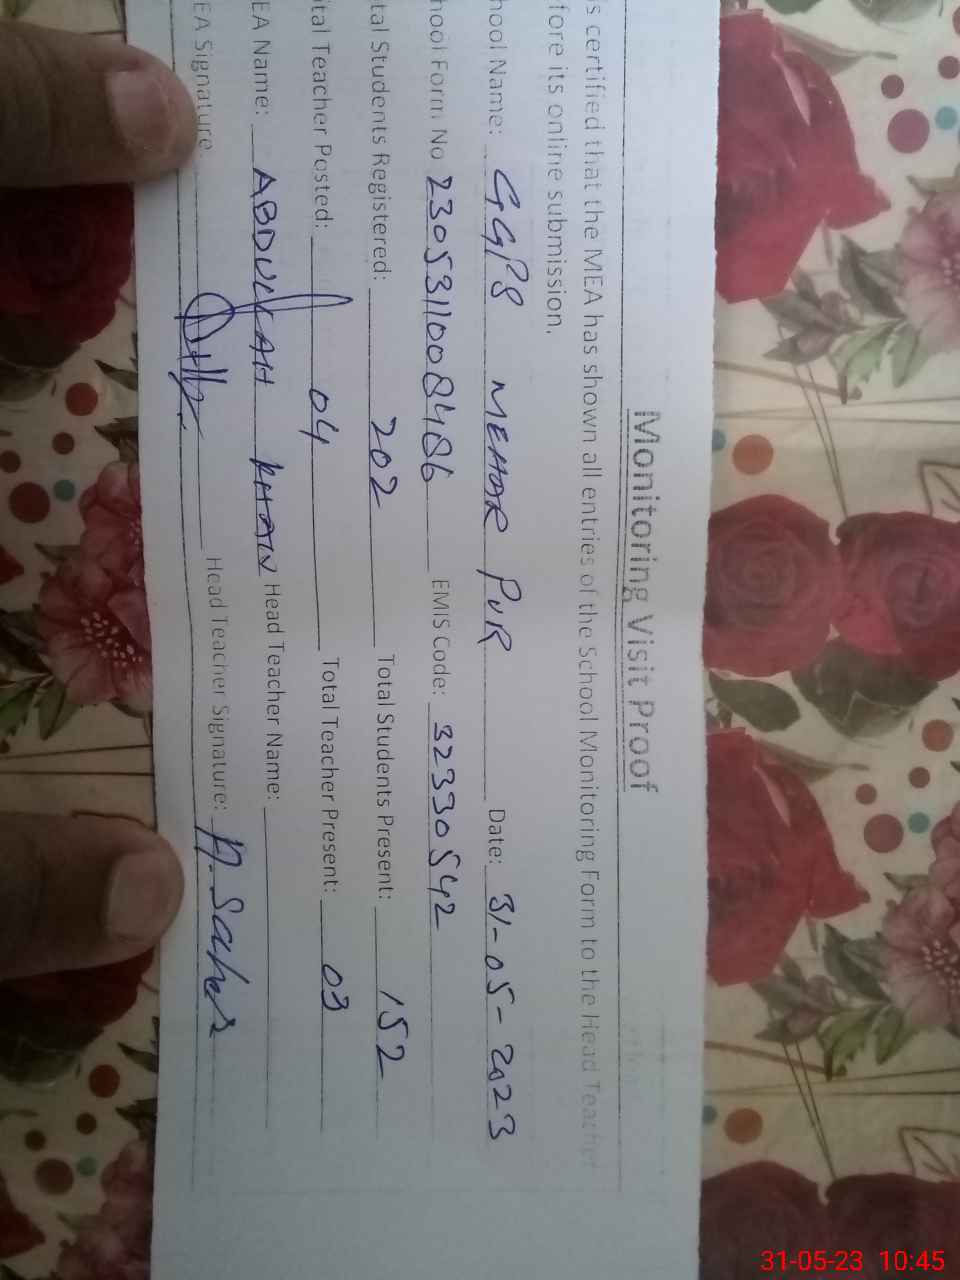 Monitoring Visit Proof
is certified that the MEA has shown all entries of the School Monitoring Form to the Head Teacher
fore its online submission.
hool Name: GGPS MEHAR PUR Date: 31-05-2023
hool Form No 2305311008486 EMIS Code: 32330542
tal Students Registered: 202 Total Students Present: 152
tal Teacher Posted: 04 Total Teacher Present: 03
EA Name: ABDULLAH KHAN Head Teacher Name:
EA Signature: Head Teacher Signature: A. Sahar
31-05-23 10:45